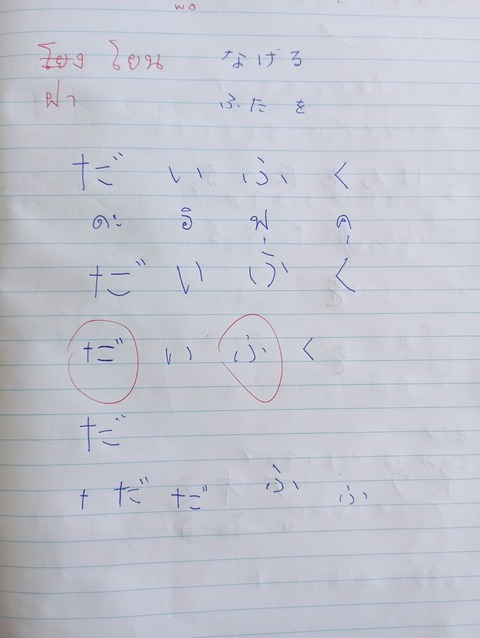 wo
โยง โยน なげる
ฝา ふたを
だ い ふ く
ดะ อิ ฟุ คุ
だ い ふ く
だ い ふ く
だ
ナ だ だ ふ ふ